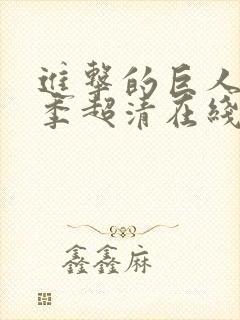 進擊的巨人
季超清在綫
鑫鑫麻